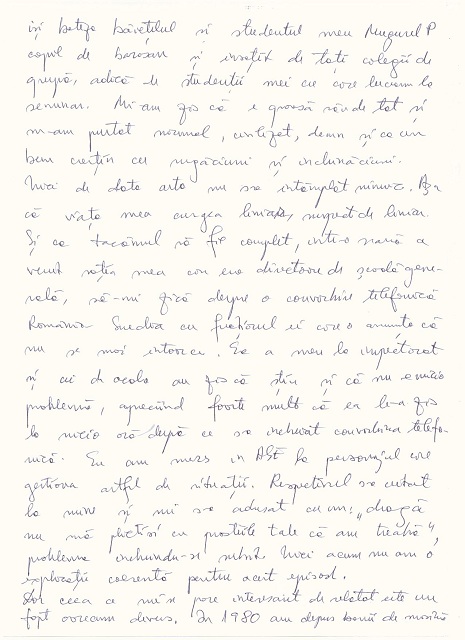 își boteza băiețelul și studentul meu Mugurel P
copil de barosan și însoțit de toți colegii de
grupă, adică de studenții mei cu care lucram la
seminar. Mi-am zis că e groasă rău de tot și
m-am purtat normal, civilizat, demn și ca un
bun creștin cu rugăciuni și închinăciuni.
Nici de data asta nu s-a întâmplat nimic. Așa
că viața mea curgea liniar, de liniar.
Și ca tacâmul să fie complet, într-o seară a
venit soția mea care era directoare de școală gene-
rală, să-mi zică despre o convorbire telefonică
România Suedia cu fratele ei care o anunța că
nu se mai întoarce. Ea a mers la inspectorat
și cei de acolo au zis că știu și că nu e nicio
problemă, apreciind foarte mult că ea le-a zis
la nicio oră după ce s-a încheiat convorbirea telefo-
nică. Eu am mers în ASE la personajul care
gestiona astfel de situații. Respectivul s-a uitat
la mine și mi s-a adresat cu un: „dragă
nu mă plictisi cu prostiile tale că am treabă",
problema închizându-se subit. Nici acum nu am o
explicație coerentă pentru acest episod.
Dar ceea ce mi se pare interesant de relatat este un
fapt oarecum divers. În 1980 am depus bani de mașină